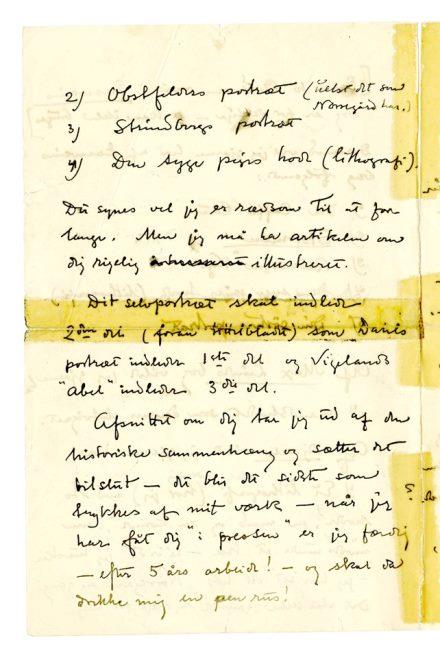 2) Obstfelders portræt (helst det som
Nørregård har.)
3) Strindbergs portræt
4) Den syge piges hode (lithografi).
Du synes vel jeg er rædsom til at for
lange. Men jeg må ha artikelen om
dig rigelig illustreret.
Dit selvportræt skal indlede
2den del (foran titelbladet) som Davids
portræt indleder 1ste del og Vigelands
"Abel" indleder 3die del.
Afsnittet om dig tar jeg ud af den
historiske sammenhæng og sætter det
tilslut – det blir det sidste som
trykkes af mit værk – når jeg
har fåt dig "i pressen" er jeg færdig
– efter 5 års arbeide! – og skal da
drikke mig en pen rus!